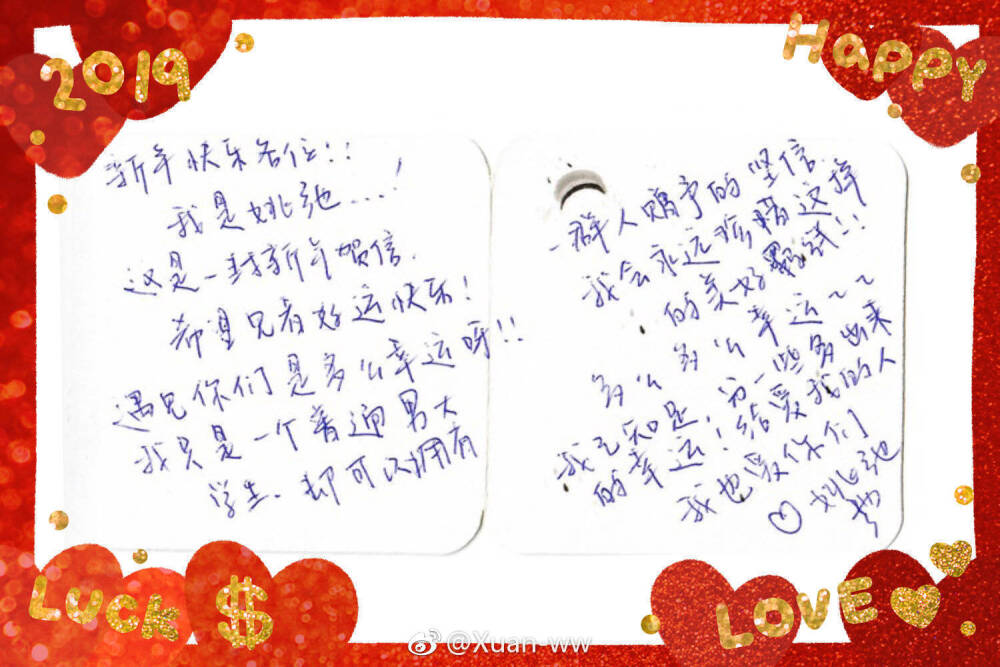 2019
Happy
新年快乐各位!!
我是姚弛...!
这是一封新年贺信.
希望见者好运快乐!
遇见你们是多么幸运呀!!
我只是一个普通男大
学生、却可以拥有
一群人赐予的坚信
我会永远珍惜这样
的美好
多么多么幸运~~
我已知足,
的幸运!给爱我的人
我也爱你们
♡姚弛
Luck $
LOVE
@Xuan-ww